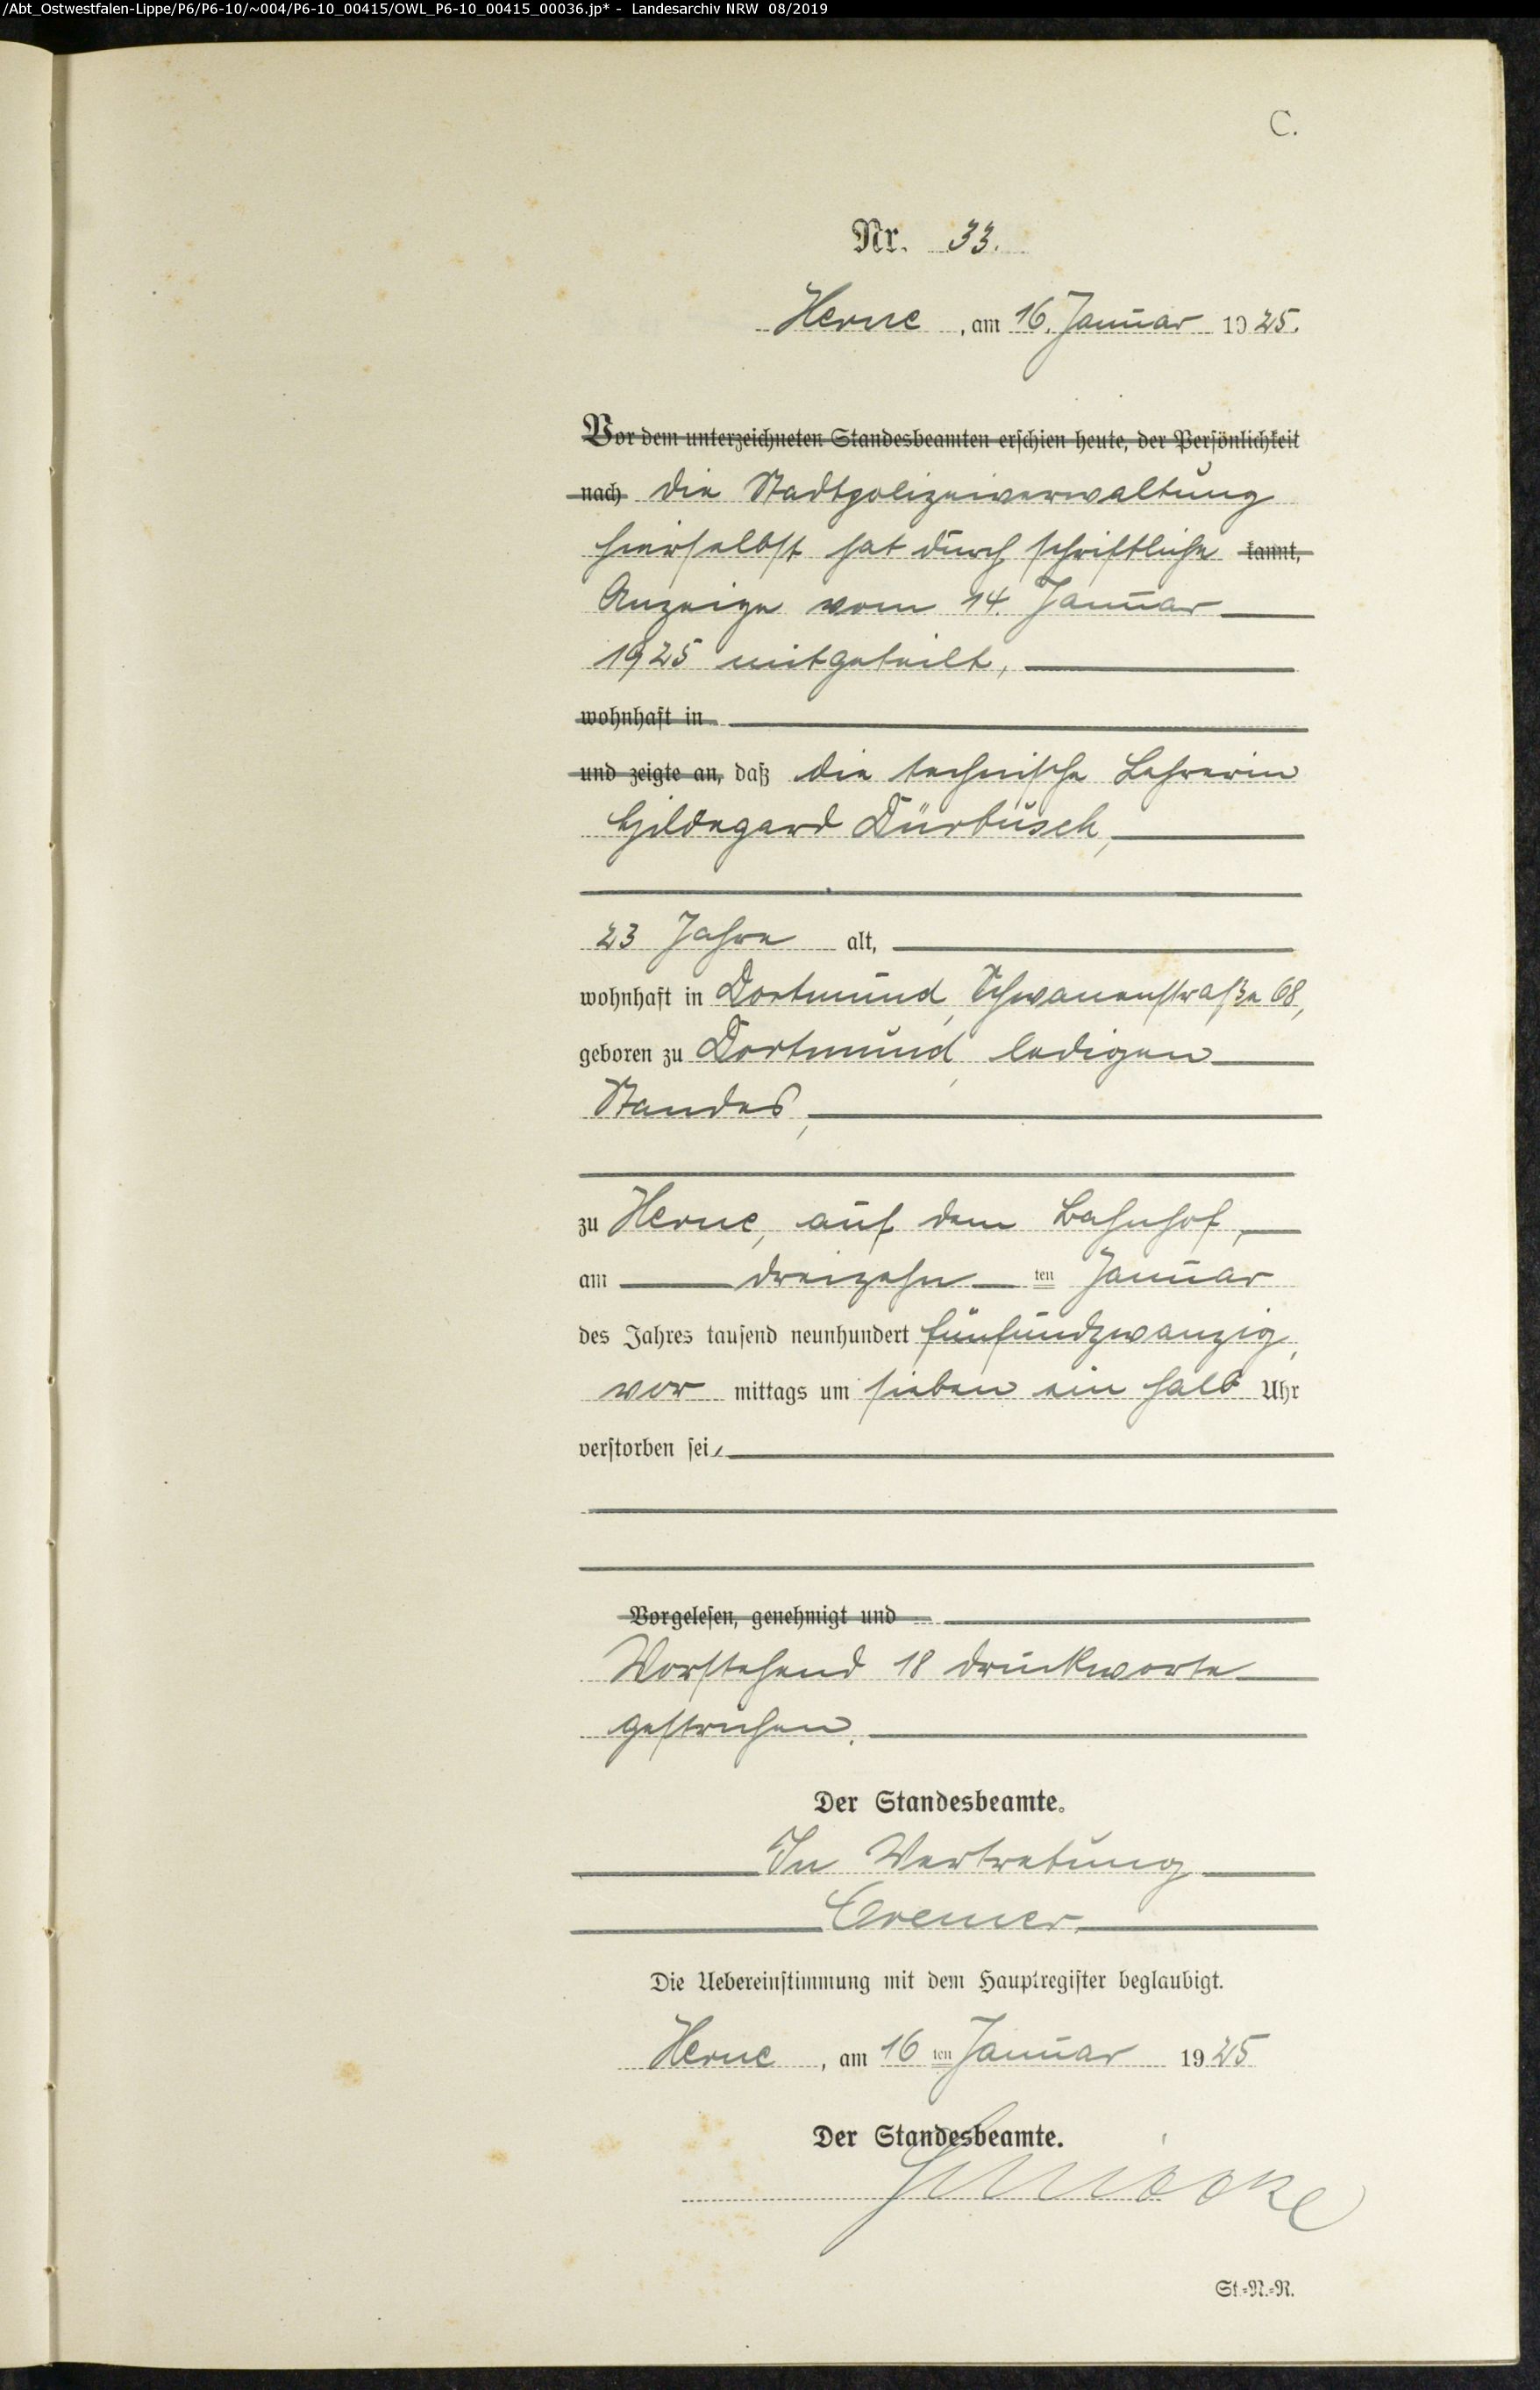 /Abt_Ostwestfalen-Lippe/P6/P6-10/~004/P6-10_00415/OWL_P6-10_00415_00036.jp* - Landesarchiv NRW 08/2019
C.
Nr. 33.
Herne, am 16. Januar 1925.
Vor dem unterzeichneten Standesbeamten erschien heute, der Persönlichkeit
nach die Stadtpolizeiverwaltung
hierselbst hat durch schriftliche kannt,
Anzeige vom 14. Januar
1925 mitgeteilt,
wohnhaft in
und zeigte an, daß die technische Lehrerin
Hildegard Dürbusch,
23 Jahre alt,
wohnhaft in Dortmund, Schwanenstraße 68,
geboren zu Dortmund, ledigen
Standes,
zu Herne, auf dem Bahnhof,
am dreizehnten Januar
des Jahres tausend neunhundert fünfundzwanzig,
vor mittags um sieben ein halb Uhr
verstorben sei.
Vorgelesen, genehmigt und
Vorstehend 18 Druckworte
gestrichen.
Der Standesbeamte.
In Vertretung
Cremer.
Die Uebereinstimmung mit dem Hauptregister beglaubigt.
Herne, am 16ten Januar 1925
Der Standesbeamte.
St.=N.=R.